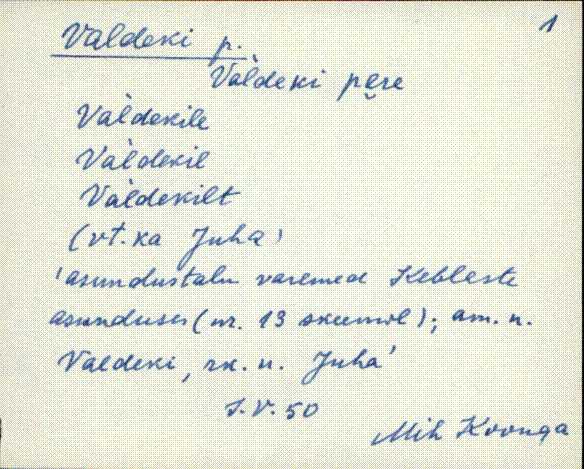 1
Valdeki p.
Val̀deki pẹre
Val̀dekile
Val̀dekil
Val̀dekilt
(vt. ka Juha)
'asundustalu varemed Kebleste
asunduses (nr. 13 skeemil); am. n.
Valdeki, rk. n. Juha'
S.V. 50
Mih Koonga